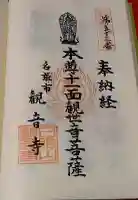 奉納経
本尊十一面観世音菩薩
名張市
観音寺